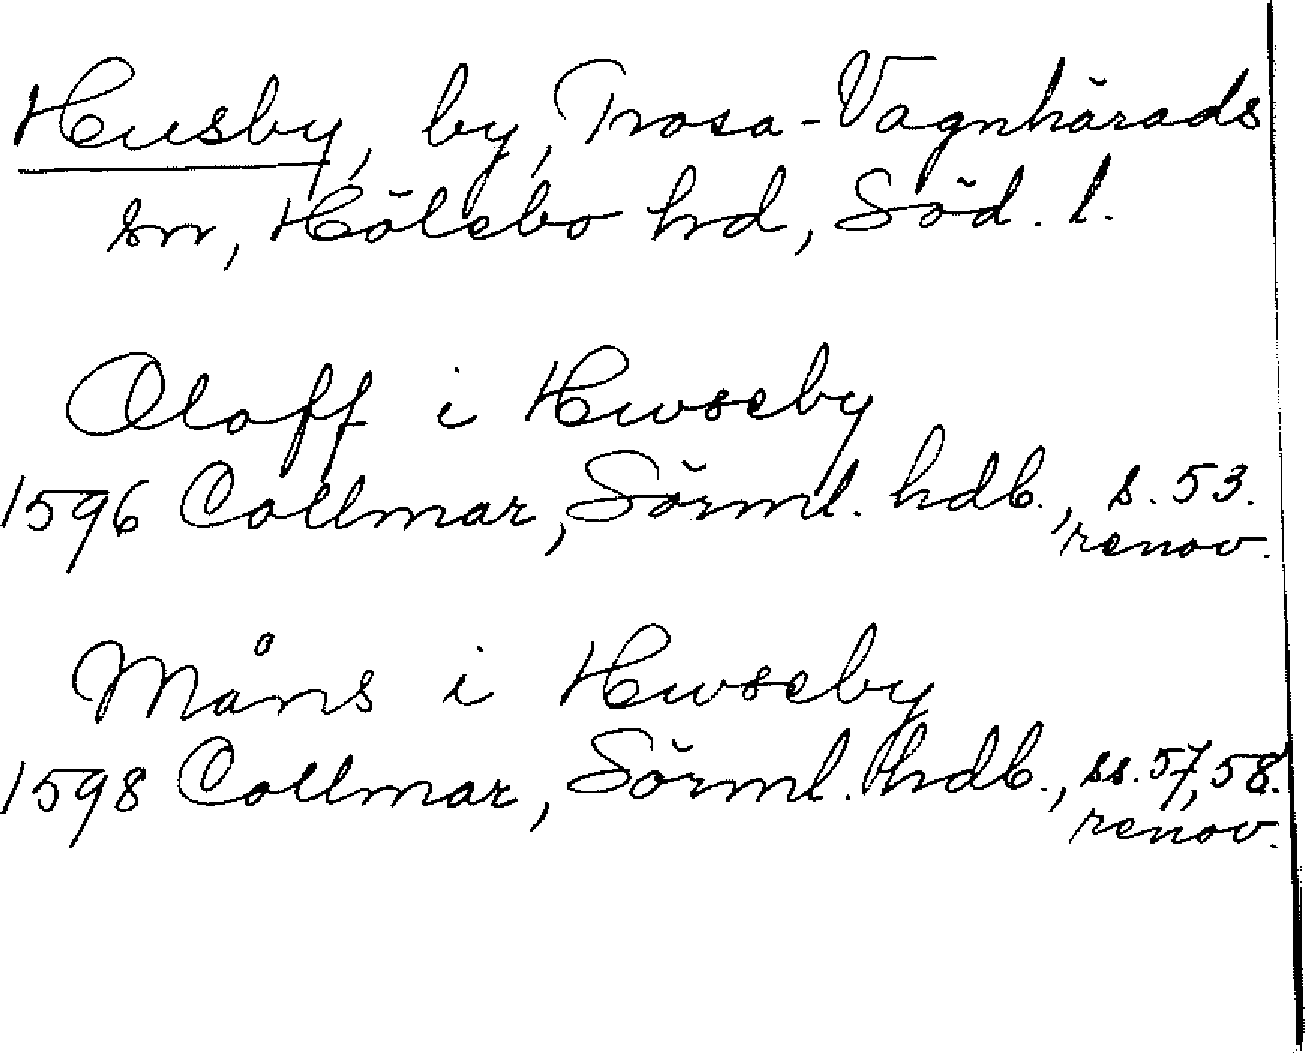 Husby, by, Trosa-Vagnhärads
sn, Hölebo hd, Söd. l.
Oloff i Hwseby
1596 Collmar, Sörml. hdb., s. 53.
renov.
Måns i Hwseby
1598 Collmar, Sörml. hdb., ss. 57, 58.
renov.